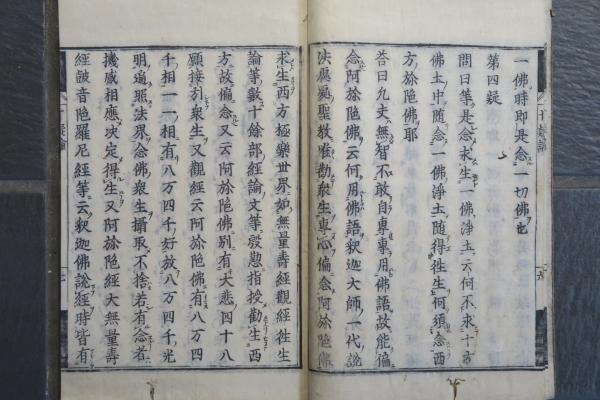 一佛時即是念一切佛也
第四疑
問曰等是念求生一佛淨土云何不求十方
佛土中隨念一佛淨土隨得徃生何須念西
方於陁佛耶
荅曰凢夫無智不敢自專專用佛語故能偏
念阿於陁佛云何用佛語釋迦大師一代說
法處處聖教唯勸衆生專心偏念阿於陁佛
求生西方極樂世界如無量壽經觀經徃生
論等數十餘部經論文等慇懃指授勸生西
方故偏念又云阿於陁佛別有大悲四十八
願接引衆生又觀經云阿於陁佛有八万四
千相一一相有八万四千好放八万四千光
明遍照法界念佛衆生攝取不捨若有念者
機感相應决定得生又阿於陁經大無量壽
經皷音陁羅尼經等云釋迦佛說經時皆有
十疑論